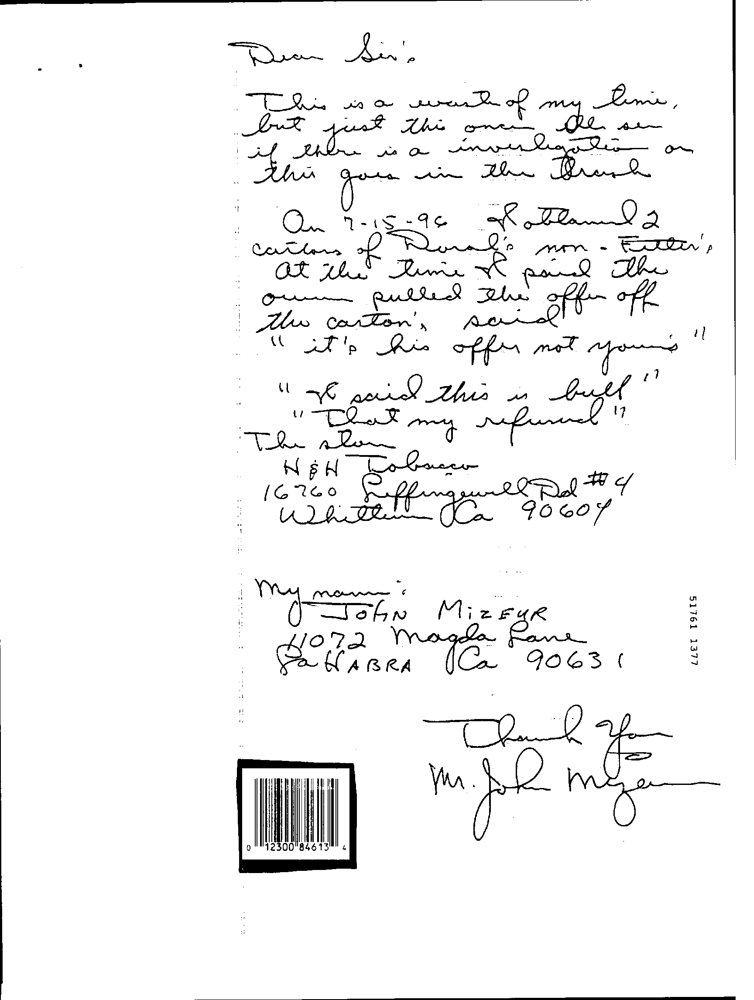 Dear Sir's
This is a waste of my time,
but just this once I'll see
if there is a investigation or
this goes in the Trash
On 7-15-96 I obtained 2
cartons of Doral's non-Filter's
At the time I paid the
owner pulled the offer off
the carton's, said
" it's his offer not your's "
" I said this is bull "
" That my refund "
The store
H & H Tobacco
16760 Leffingwell Rd #4
Whittier Ca 90604
My name:
JOHN MIZEUR
11072 Magda Lane
La HABRA Ca 90631
Thank You
Mr. John Mizeur
0 12300 84613 4
51761 1377